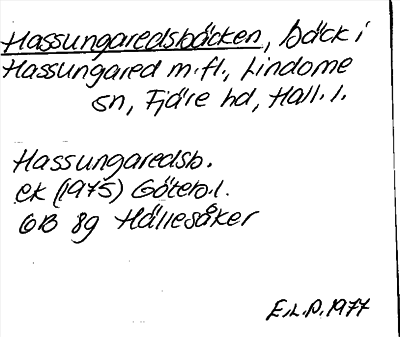 Hassungaredsbäcken, bäck i
Hassungared m.fl., Lindome
sn, Fjäre hd, Hall. l.
Hassungaredsb.
ek (1975) Göteb.l.
GB 8g Hällesåker
E.L.P. 1977